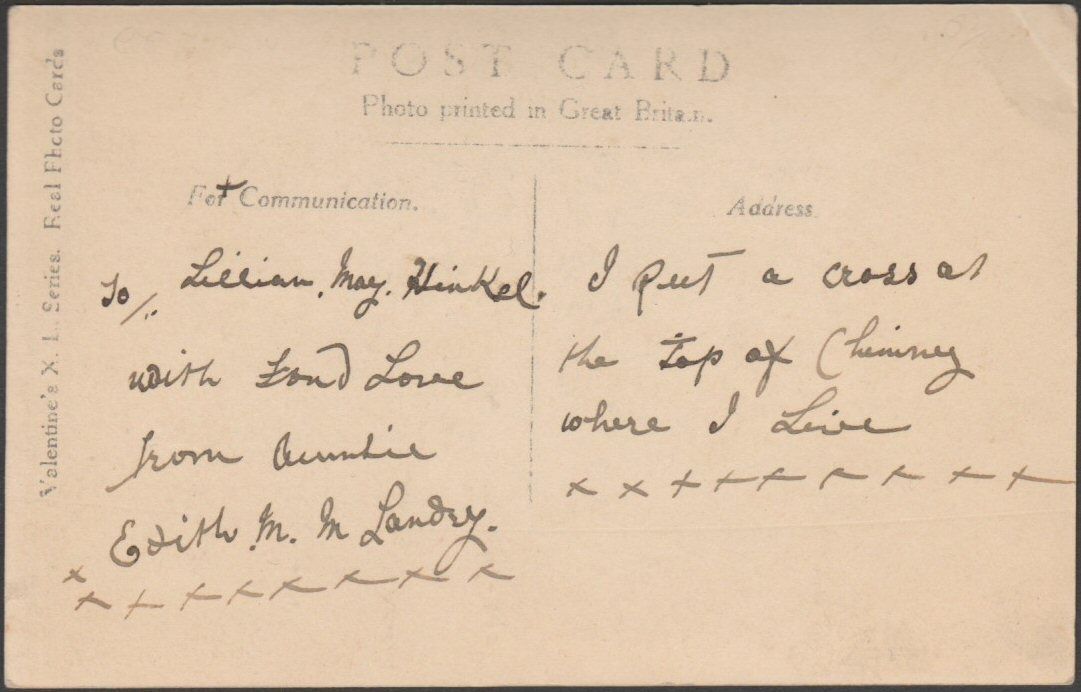 POST CARD
Photo printed in Great Britain.
Valentine's X. L. Series. Real Photo Cards
For Communication.
Address
To/. Lillian. May. Hinkel.
with Fond Love
from Auntie
Edith. M. M Landry.
x
x x x x x x x x
I put a cross at
the top of Chimney
where I Live
x x x x x x x x x